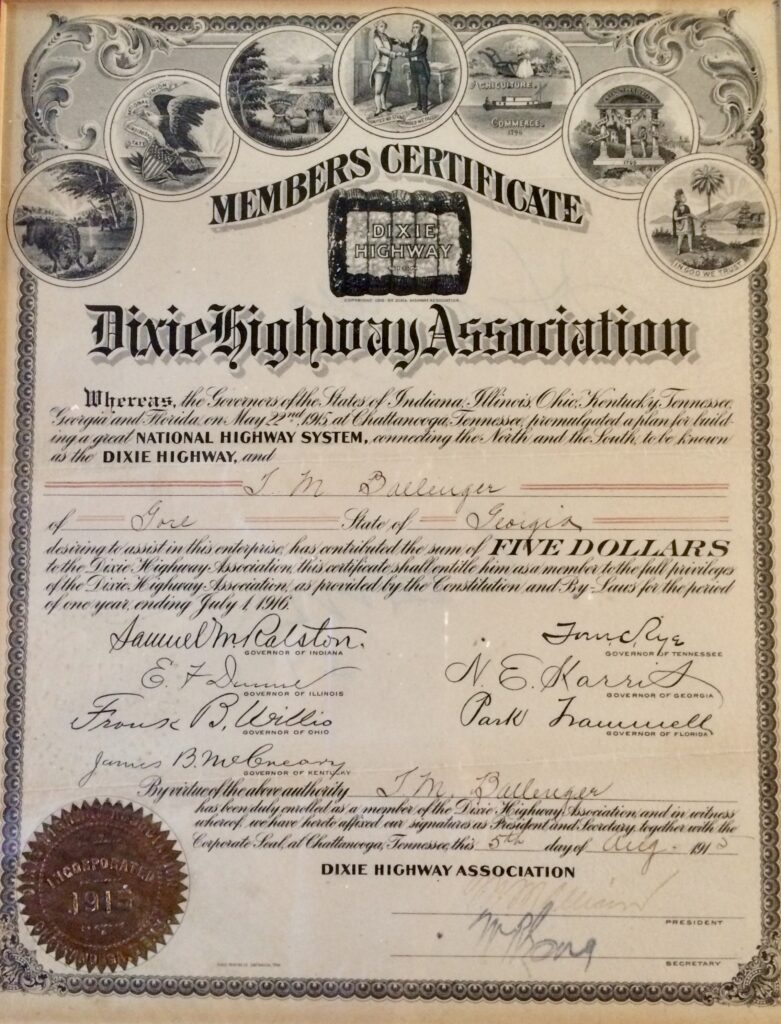 STATE UNION
STATE
UNITED WE STAND DIVIDED WE FALL
AGRICULTURE.
COMMERCE.
1796
CONSTITUTION
IN GOD WE TRUST
MEMBERS CERTIFICATE
DIXIE
HIGHWAY
Dixie Highway Association
Whereas, the Governors of the States of Indiana, Illinois, Ohio, Kentucky, Tennessee,
Georgia and Florida, on May 22nd, 1915, at Chattanooga, Tennessee, promulgated a plan for build-
ing a great NATIONAL HIGHWAY SYSTEM, connecting the North and the South, to be known
as the DIXIE HIGHWAY, and
T M Ballenger
of Gore State of Georgia
desiring to assist in this enterprise, has contributed the sum of FIVE DOLLARS
to the Dixie Highway Association, this certificate shall entitle him as a member to the full privileges
of the Dixie Highway Association, as provided by the Constitution and By-Laws for the period
of one year, ending July 1, 1916.
Samuel M. Ralston.
GOVERNOR OF INDIANA
Tom C Rye
GOVERNOR OF TENNESSEE
E. F Dunne
GOVERNOR OF ILLINOIS
N. E. Harris
GOVERNOR OF GEORGIA
Frank B. Willis
GOVERNOR OF OHIO
Park Trammell
GOVERNOR OF FLORIDA
James B. McCreary
GOVERNOR OF KENTUCKY
By virtue of the above authority T. M. Ballenger
has been duly enrolled as a member of the Dixie Highway Association, and in witness
whereof, we have hereto affixed our signatures as President and Secretary, together with the
Corporate Seal, at Chattanooga, Tennessee, this 5th day of Aug. 1915
DIXIE HIGHWAY ASSOCIATION
PRESIDENT
SECRETARY
INCORPORATED
1915